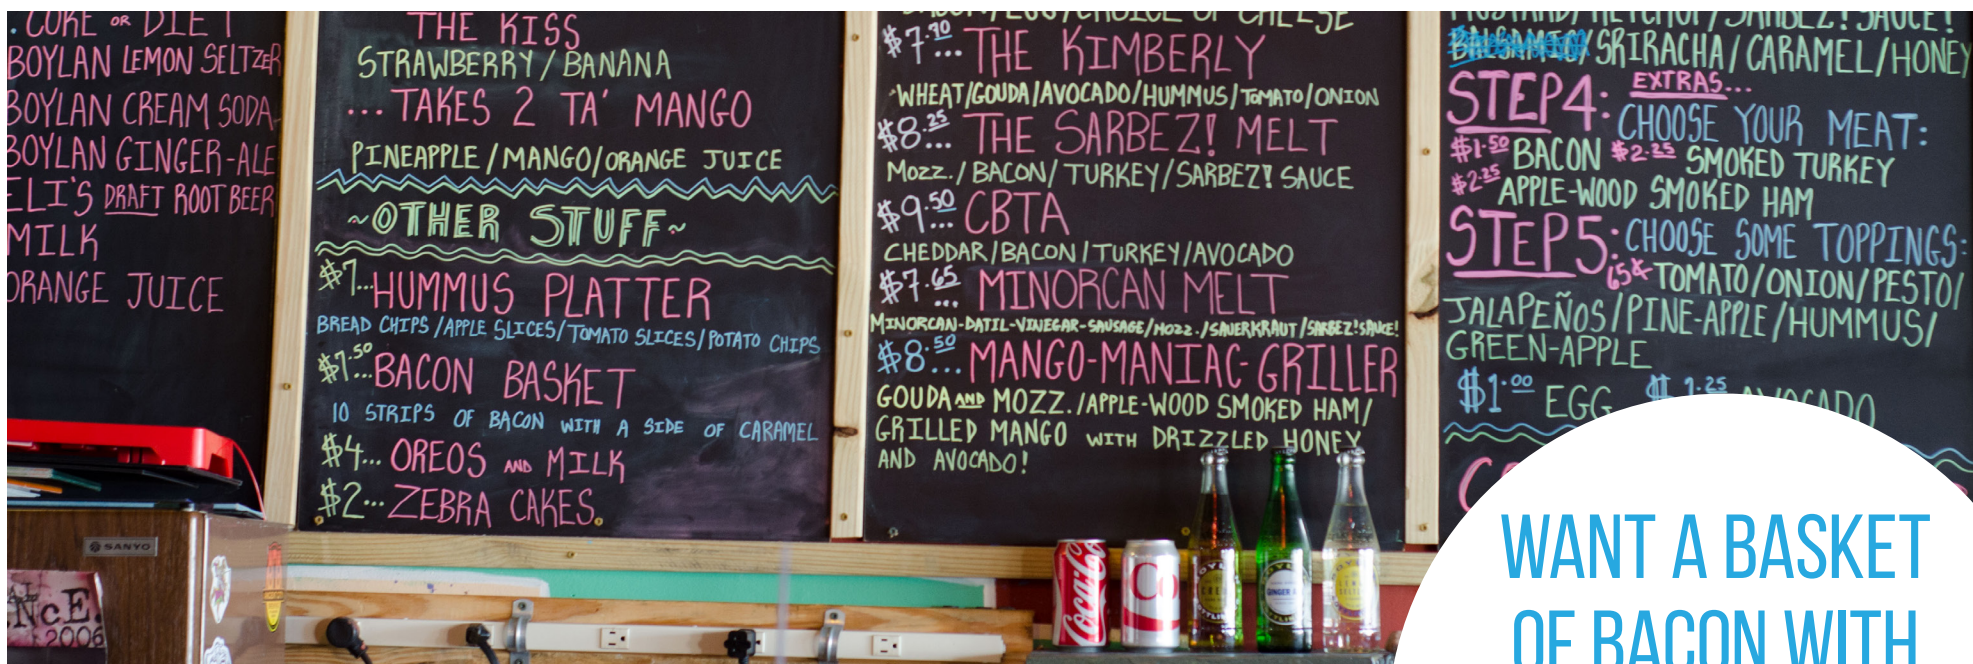 COKE OR DIET
BOYLAN LEMON SELTZER
BOYLAN CREAM SODA
BOYLAN GINGER-ALE
ELI'S DRAFT ROOT BEER
MILK
ORANGE JUICE
THE KISS
STRAWBERRY/BANANA
...TAKES 2 TA' MANGO
PINEAPPLE/MANGO/ORANGE JUICE
~OTHER STUFF~
$7...HUMMUS PLATTER
BREAD CHIPS/APPLE SLICES/TOMATO SLICES/POTATO CHIPS
$7.50...BACON BASKET
10 STRIPS OF BACON WITH A SIDE OF CARAMEL
$4...OREOS AND MILK
$2...ZEBRA CAKES
BACON/EGG/CHOICE OF CHEESE
$7.70...THE KIMBERLY
WHEAT/GOUDA/AVOCADO/HUMMUS/TOMATO/ONION
$8.25...THE SARBEZ! MELT
MOZZ./BACON/TURKEY/SARBEZ! SAUCE
$9.50...CBTA
CHEDDAR/BACON/TURKEY/AVOCADO
$7.65...MINORCAN MELT
MINORCAN-DATIL-VINEGAR-SAUSAGE/MOZZ./SAUERKRAUT/SARBEZ!SAUCE!
$8.50...MANGO-MANIAC-GRILLER
GOUDA AND MOZZ./APPLE-WOOD SMOKED HAM/
GRILLED MANGO WITH DRIZZLED HONEY
AND AVOCADO!
MUSTARD/KETCHUP/SARBEZ! SAUCE!
/SRIRACHA/CARAMEL/HONEY
STEP4: EXTRAS...
CHOOSE YOUR MEAT:
$1.50 BACON $2.25 SMOKED TURKEY
$2.25 APPLE-WOOD SMOKED HAM
STEP5: CHOOSE SOME TOPPINGS:
65¢ TOMATO/ONION/PESTO/
JALAPEÑOS/PINE-APPLE/HUMMUS/
GREEN-APPLE
$1.00 EGG $1.25 AVOCADO
SANYO
NCE.
2006
Coca-Cola
Co
GINGER
WANT A BASKET
OF BACON WITH